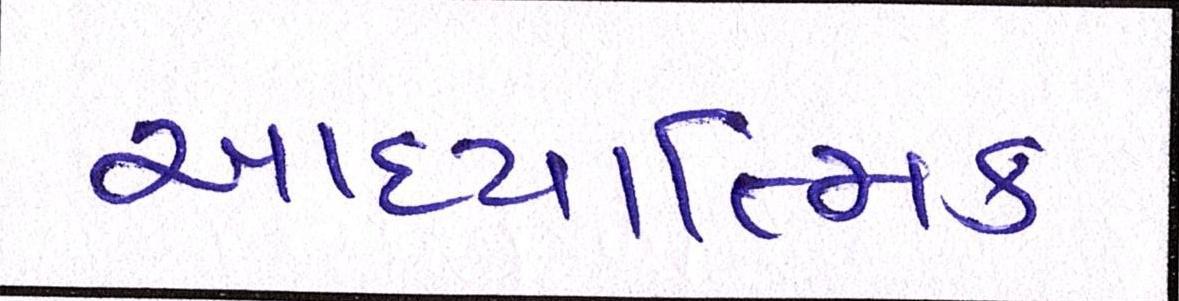 આધ્યાત્મિક